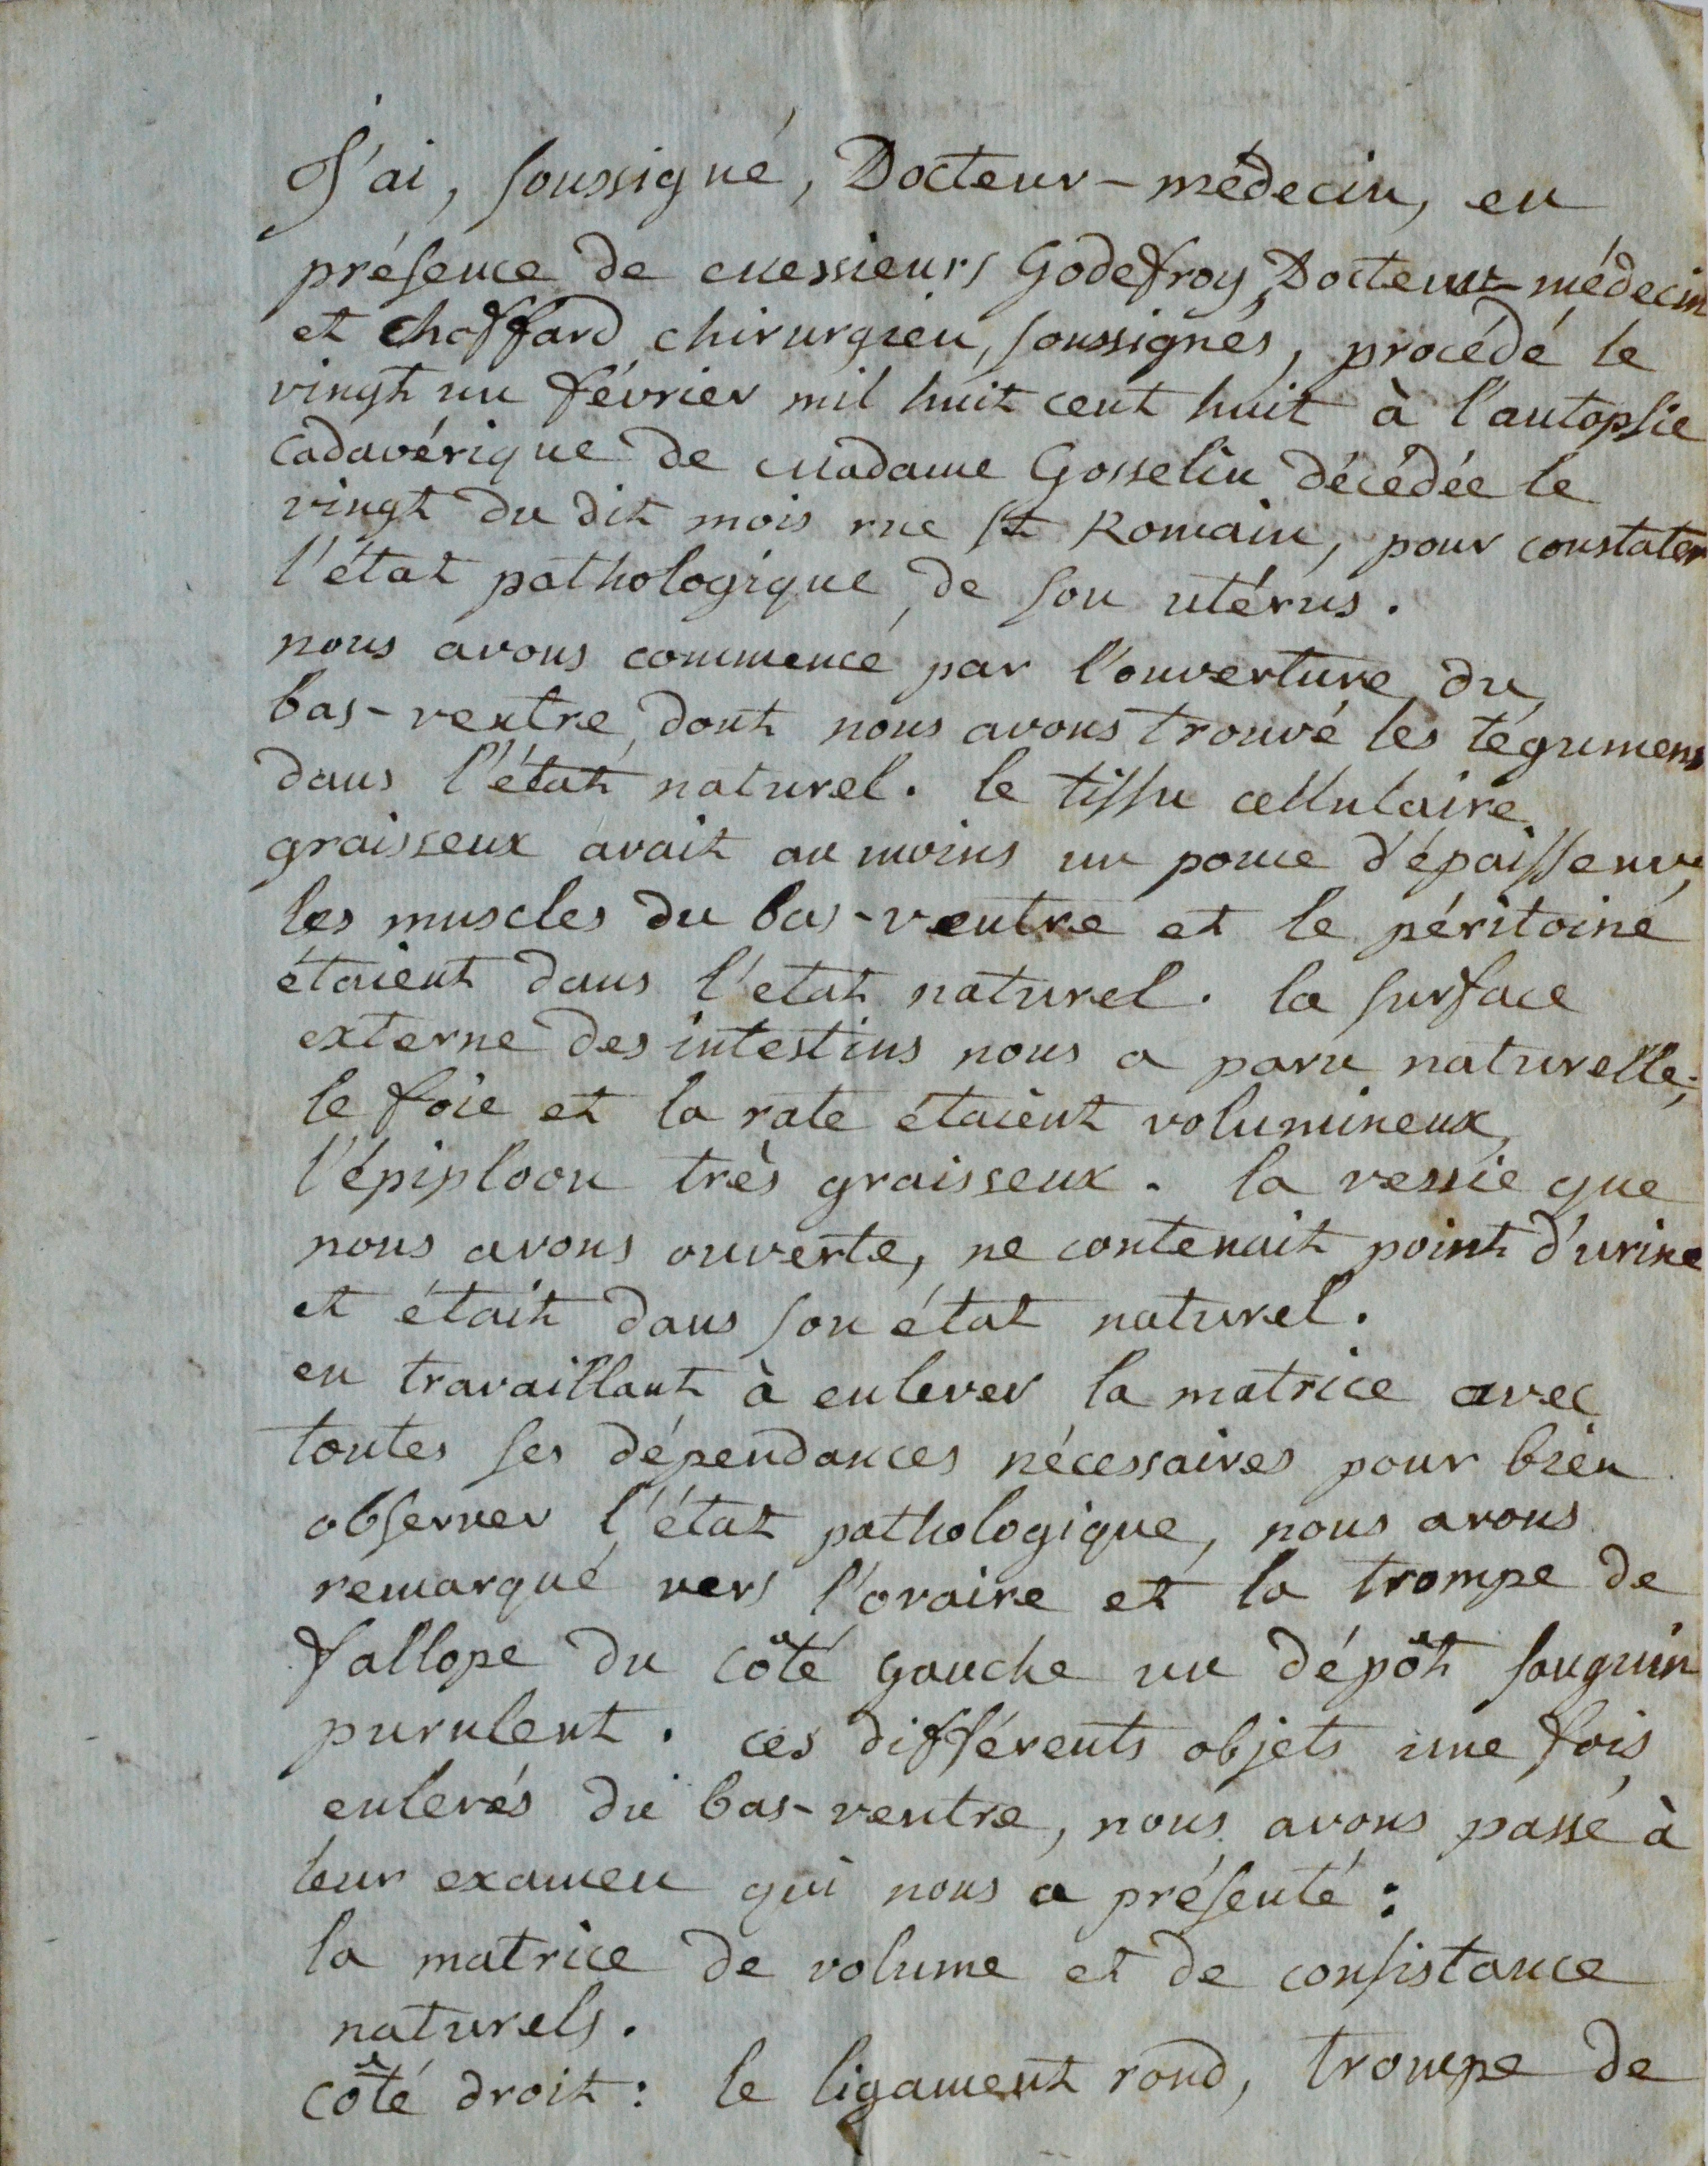 J'ai, soussigné, Docteur-médecin, en
présence de messieurs Godefroy Docteur-médecin
et choffard chirurgien, soussignés, procédé le
vingt un février mil huit cent huit à l'autopsie
cadavérique de madame Gosselin décédée le
vingt du dit mois rue St Romain, pour constater
l'état pathologique de son utérus.
nous avons commencé par l'ouverture du
bas-ventre dont nous avons trouvé les tégumens
dans l'état naturel. le tissu cellulaire
graisseux avait au moins un pouce d'épaisseur,
les muscles du bas-ventre et le péritoine
étaient dans l'etat naturel. la surface
externe des intestins nous a paru naturelle;
le foie et la rate étaient volumineux,
l'épiploon très graisseux. la vessie que
nous avons ouverte, ne contenait point d'urine
et était dans son état naturel.
en travaillant à enlever la matrice avec
toutes ses dépendances nécessaires pour bien
observer l'état pathologique, nous avons
remarqué vers l'ovaire et la trompe de
fallope du côté gauche un dépôt sanguin
purulent. ces différents objets une fois
enlevés du bas-ventre, nous avons passé à
leur examen qui nous a présenté:
la matrice de volume et de consistance
naturels.
côté droit: le ligament rond, trompe de